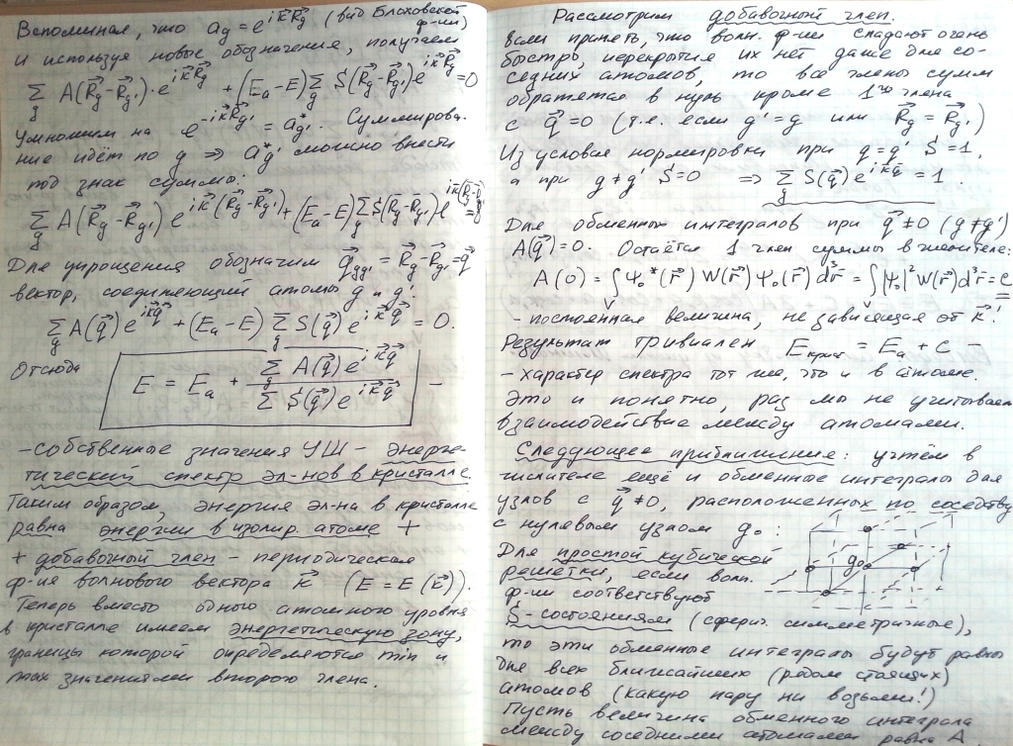 Вспоминая, что a_g = e^{i\vec{k}\vec{R}_g} (вид Блоховской ф-ии)
и используя новые обозначения, получаем
∑_g A(\vec{R}_g-\vec{R}_{g'})·e^{i\vec{k}\vec{R}_g} + (E_a-E)∑_g S(\vec{R}_g-\vec{R}_{g'})e^{i\vec{k}\vec{R}_g}=0
Умножим на e^{-i\vec{k}\vec{R}_{g'}} = a*_{g'}. Суммирова-
ние идёт по g ⇒ a*_{g'} можно внести
под знак суммы:
∑_g A(\vec{R}_g-\vec{R}_{g'}) e^{i\vec{k}(\vec{R}_g-\vec{R}_{g'})}+(E_a-E)∑_g S(\vec{R}_g-\vec{R}_{g'})e^{i\vec{k}(\vec{R}_g-\vec{R}_{g'})}=0
Для упрощения обозначим \vec{q}_{gg'}=\vec{R}_g-\vec{R}_{g'}=\vec{q}
вектор, соединяющий атомы g и g'.
∑_g A(\vec{q})e^{i\vec{k}\vec{q}} + (E_a-E) ∑_g S(\vec{q})e^{i\vec{k}\vec{q}} = 0.
Отсюда E = E_a + ∑_g A(\vec{q})e^{i\vec{k}\vec{q}} / ∑ S(\vec{q})e^{i\vec{k}\vec{q}} –
– собственные значения УШ – энерге-
тический спектр эл-нов в кристалле.
Таким образом, энергия эл-на в кристалле
равна энергии в изолир. атоме +
+ добавочный член – периодическая
ф-ия волнового вектора \vec{k} (E = E(\vec{k})).
Теперь вместо одного атомного уровня
в кристалле имеем энергетическую зону,
границы которой определяются min и
max значениями второго члена.
Рассмотрим добавочный член.
Если принять, что волн. ф-ии спадают очень
быстро, перекрытия их нет даже для со-
седних атомов, то все члены сумм
обратятся в нуль кроме 1го члена
с \vec{q}=0 (т.е. если g'=g или \vec{R}_g=\vec{R}_{g'})
Из условия нормировки при g=g' S=1,
а при g≠g' S=0 ⇒ ∑_g S(\vec{q})e^{i\vec{k}\vec{q}} = 1.
Для обменных интегралов при \vec{q}≠0 (g≠g')
A(\vec{q})=0. Остаётся 1 член суммы в числителе:
A(0) = ∫Ψ_0*(\vec{r}) W(\vec{r})Ψ_0(\vec{r}) d^3\vec{r} = ∫|Ψ_0|^2W(\vec{r})d^3\vec{r}=C
– постоянная величина, не зависящая от \vec{k}!
Результат тривиален E_{крист} = E_a + C –
– характер спектра тот же, что и в атоме.
Это и понятно, раз мы не учитываем
взаимодействие между атомами.
Следующее приближение: учтём в
числителе ещё и обменные интегралы для
узлов с \vec{q}≠0, расположенных по соседству
с нулевым узлом g_0:
Для простой кубической
решётки, если волн.
ф-ии соответствуют
g_0
S-состояниям (сферич. симметричные),
то эти обменные интегралы будут равны
для всех ближайших (рядом стоящих)
атомов (какую пару ни возьми!)
Пусть величина обменного интеграла
между соседними атомами равна A.